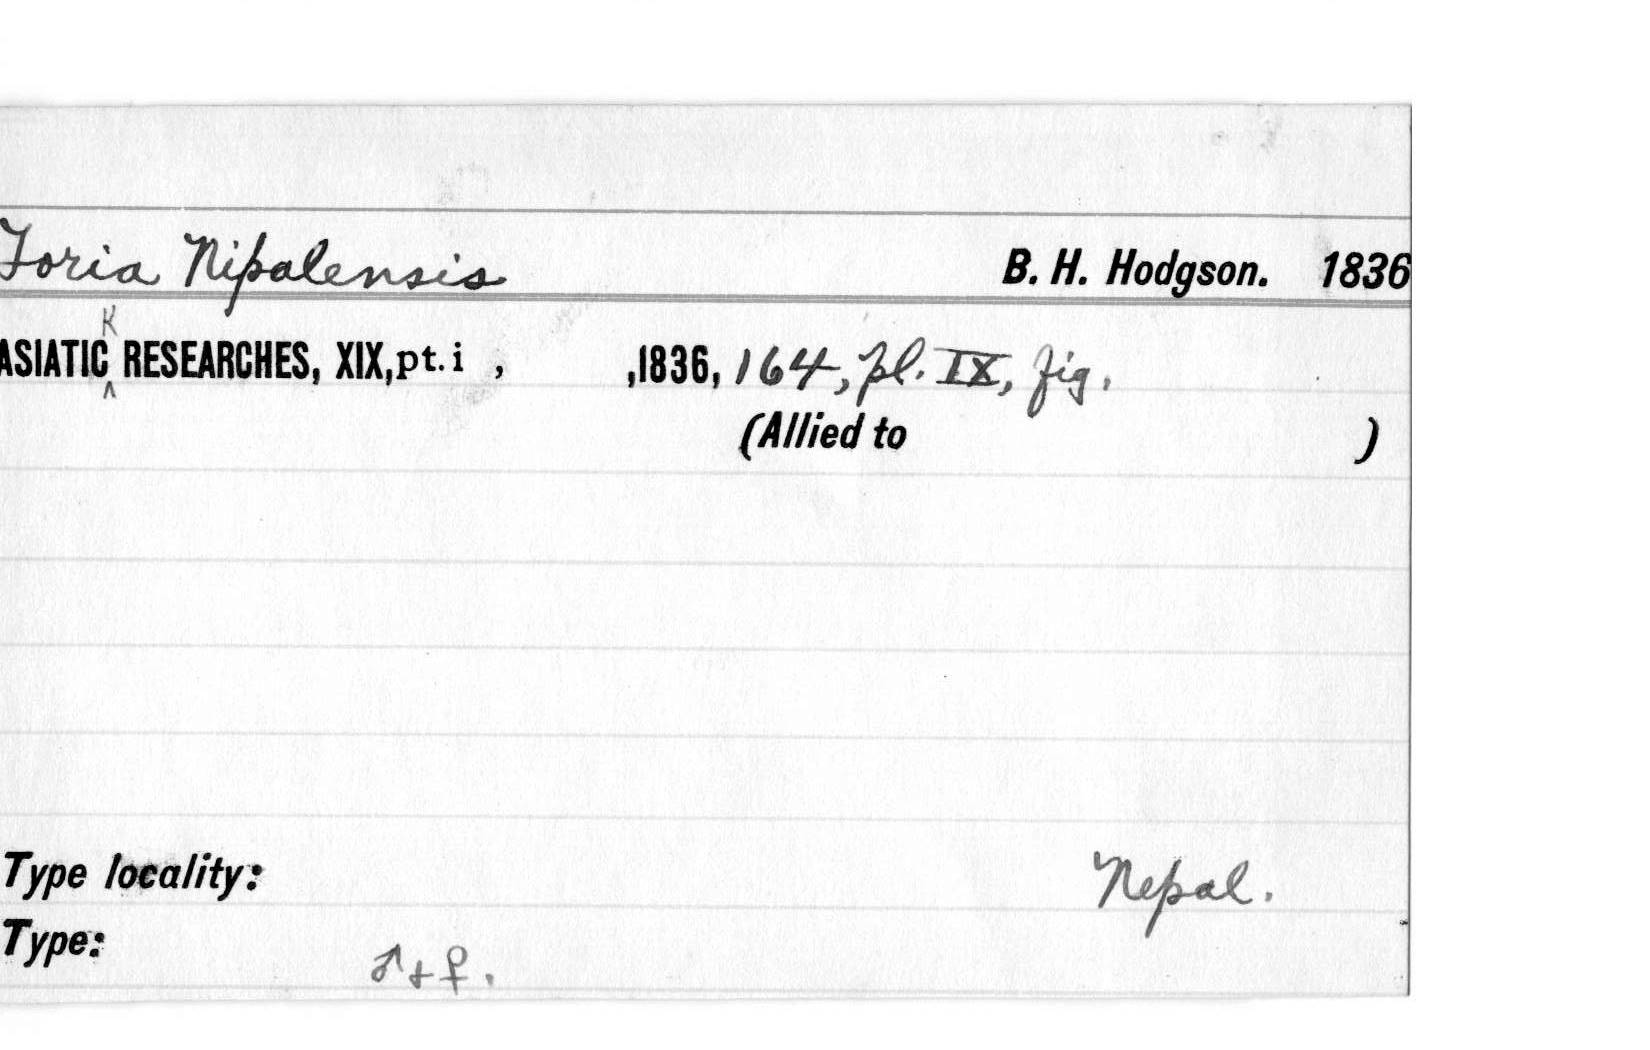 Toria Nipalensis B. H. Hodgson. 1836
K
ASIATIC RESEARCHES, XIX, pt. i , ,1836, 164, pl. IX, fig.
^
(Allied to )
Type locality: Nepal.
Type: ♂ + ♀.